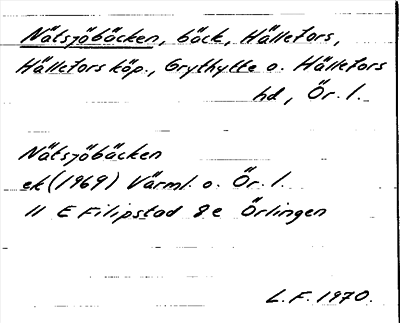 Nätsjöbäcken, bäck, Hällefors,
Hällefors köp., Grythytte o. Hällefors
hd, Ör. l.
Nätsjöbäcken
ek (1969) Värml. o. Ör. l.
11 E Filipstad 8 e Örlingen
L.F. 1970.